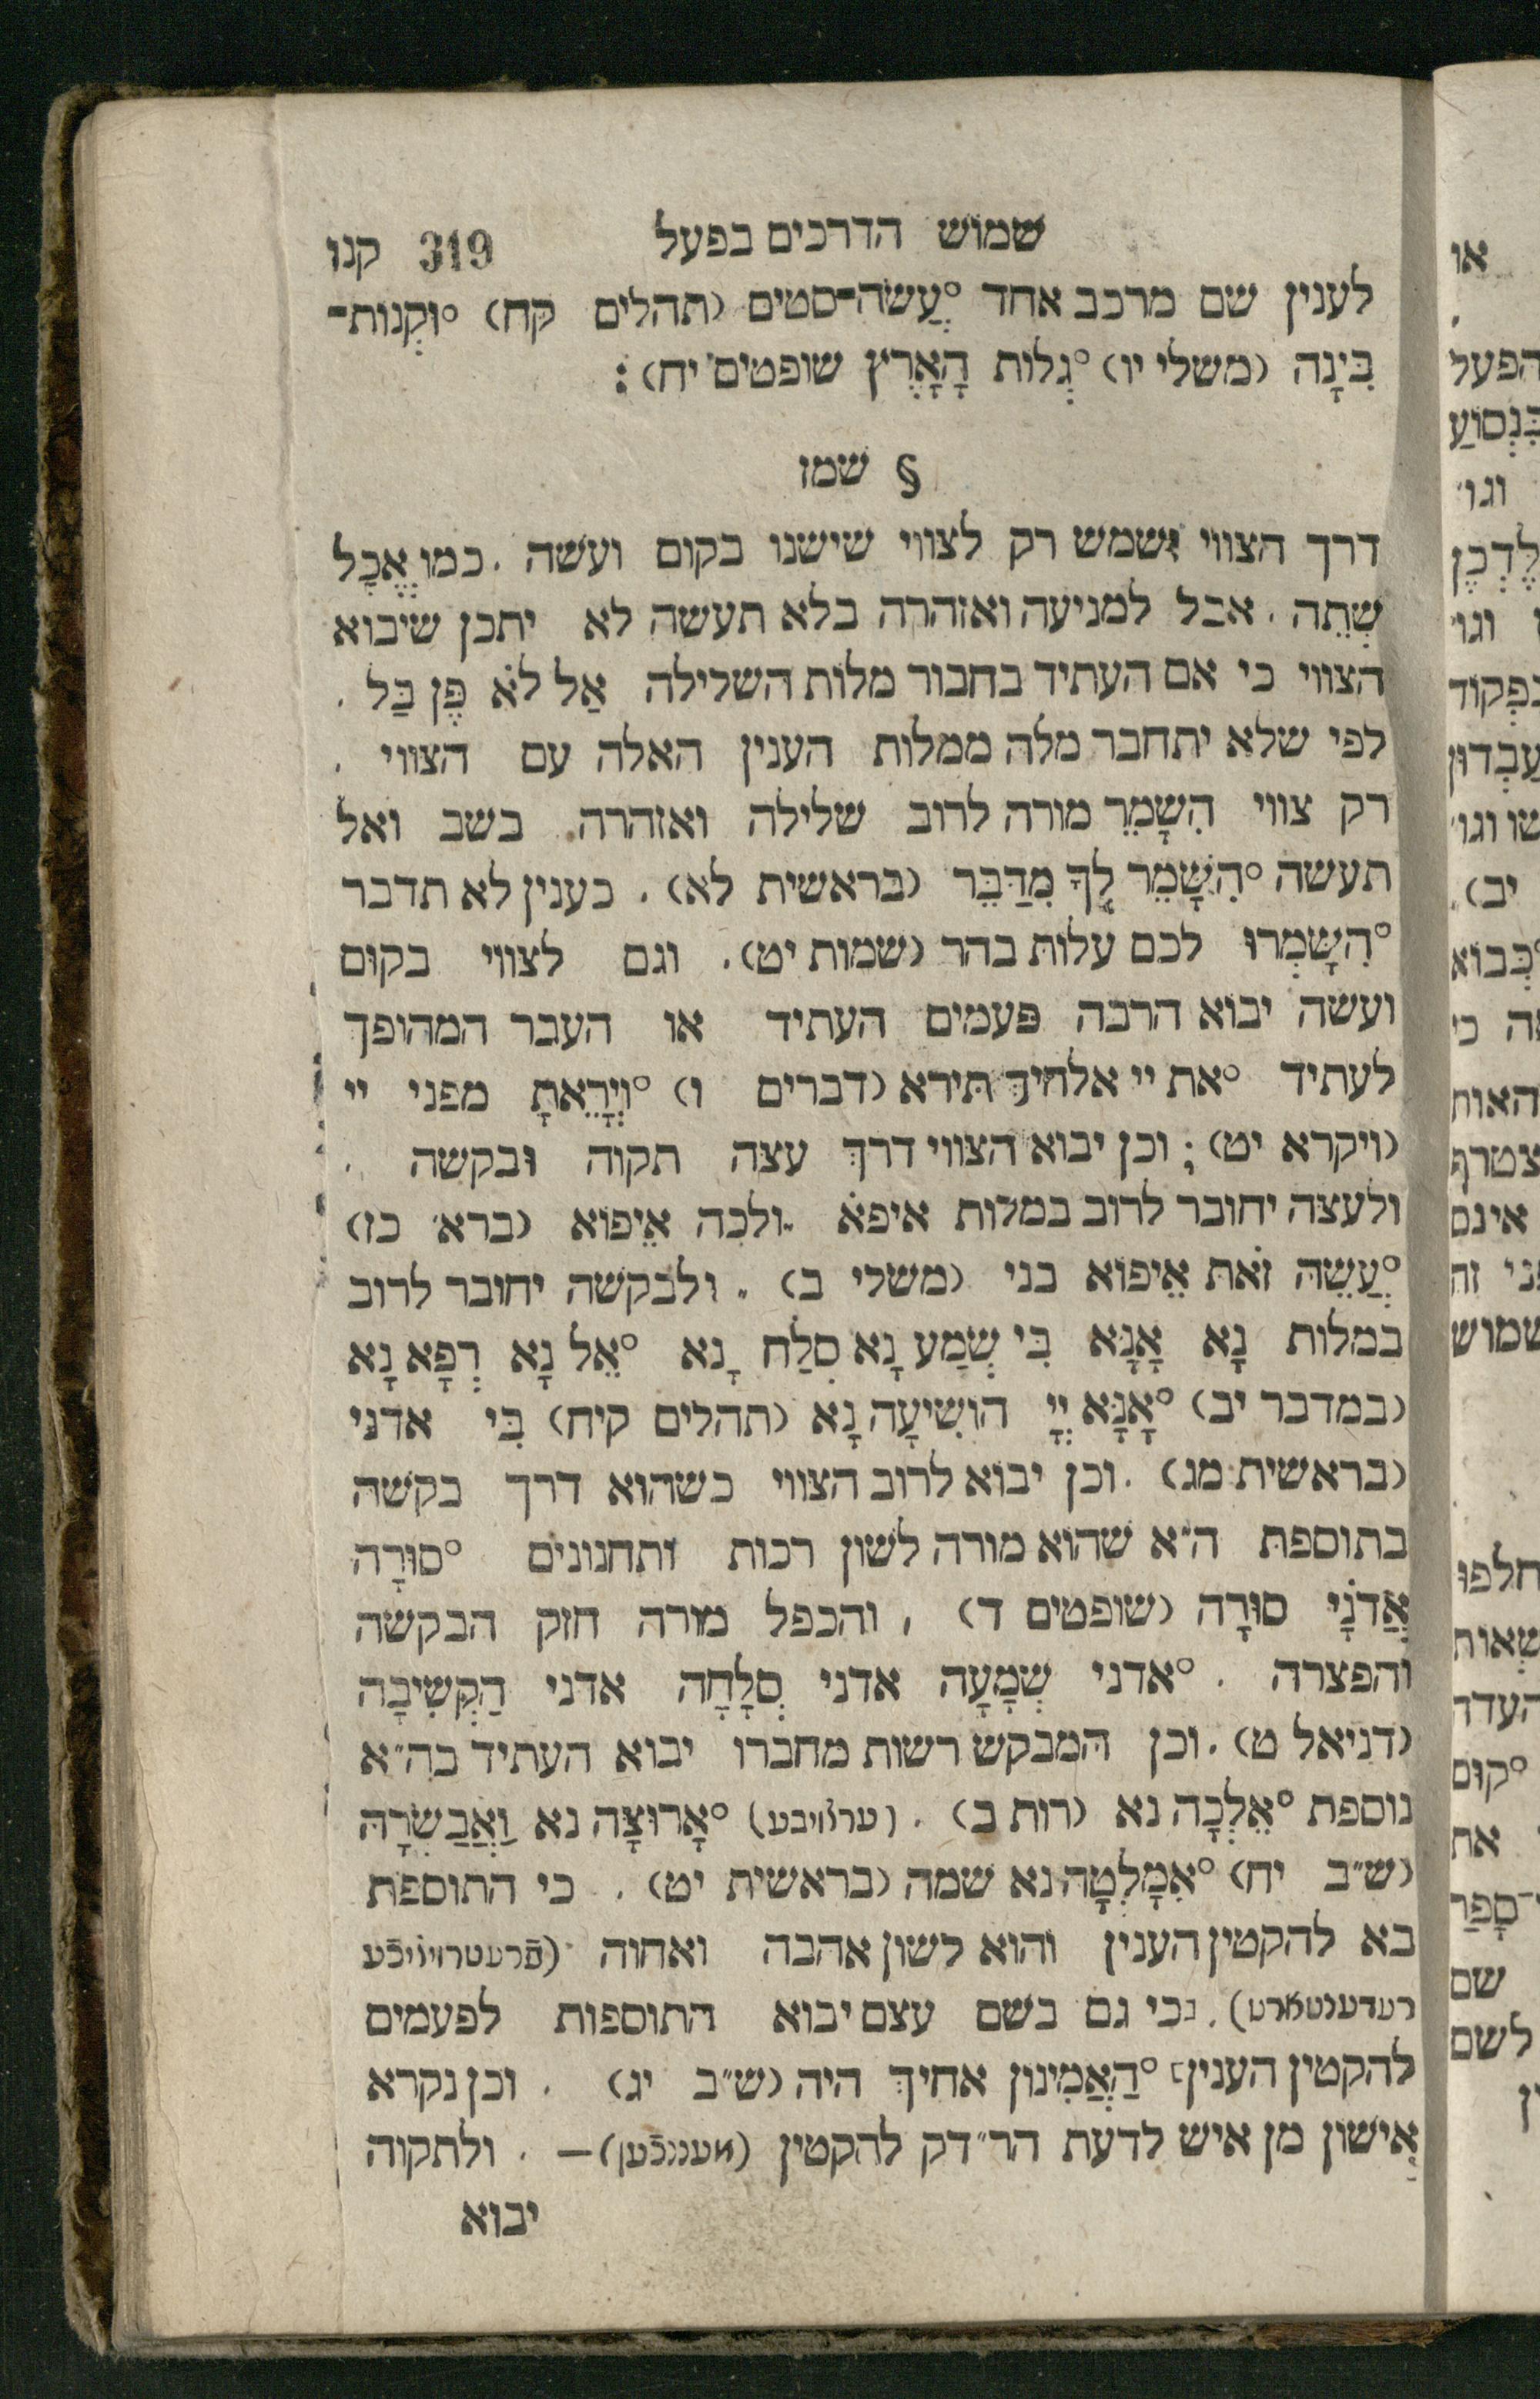 שמוש הדרכים בפעל 319 קנו
לענין שם מרכב אחד °עֲשה־סטים (תהלים קח) °וּקְנות־
בִּינָה (משלי יו) °גְלות הָאָרֶץ שופטים יח) :
§ שמו
דרך הצווי ישמש רק לצווי שישנו בקום ועשה . כמו אֱכָל
שְׁתֵה . אבל למניעה ואזהרה בלא תעשה לא יתכן שיבוא
הצווי כי אם העתיד בחבור מלות השלילה אַל לֹא פֶּן בַּל .
לפי שלא יתחבר מלה ממלות הענין האלה עם הצווי .
רק צווי הִשָּׁמֵר מורה לרוב שלילה ואזהרה . בשב ואל
תעשה °הִשָּׁמֵר לְךָ מִדַּבֵּר (בראשית לא) . כענין לא תדבר
°הִשָּׁמְרוּ לכם עלות בהר (שמות יט) . וגם לצווי בקום
ועשה יבוא הרבה פעמים העתיד או העבר המהופך
לעתיד °את יי אלהיך תירא (דברים ו) °וְיָרֵאתָ מפני יי
(ויקרא יט) ; וכן יבוא הצווי דרך עצה תקוה ובקשה .
ולעצה יחובר לרוב במלות איפֹא . ולכה אֵיפוֹא (ברא׳ כז)
°עֲשֵׂה זֹאת אֵיפוֹא בני (משלי ב) . ולבקשה יחובר לרוב
במלות נָא אָנָּא בִּי שְׁמַע נָא סְלַח נָא °אֵל נָא רְפָא נָא
(במדבר יב) °אָנָּא יְיָ הושִׁיעָה נָא (תהלים קיח) בִּי אדני
(בראשית מג) . וכן יבוא לרוב הצווי כשהוא דרך בקשה
בתוספת ה״א שהוא מורה לשון רכות ותחנונים °סוּרָה
אֲדֹנָי סוּרָה (שופטים ד) , והכפל מורה חזק הבקשה
והפצרה . °אדני שְׁמָעָה אדני סְלָחָה אדני הַקְשִׁיבָה
(דניאל ט) . וכן המבקש רשות מחברו יבוא העתיד בה״א
נוספת °אֵלְכָה נא (רות ב) . °אָרוּצָה נא וַאֲבַשְׂרָה
(ש״ב יח) °אִמָּלְטָה נא שמה (בראשית יט) . כי התוספת
בא להקטין הענין והוא לשון אהבה ואחוה
רעדענסארט) . כי גם בשם עצם יבוא התוספות לפעמים
להקטין הענין °הַאֲמִינון אחיך היה (ש״ב יג) . וכן נקרא
אִישון מן איש לדעת הר״דק להקטין (מענכֿען) — . ולתקוה
יבוא
או
הפעל
בִּנְסוֹעַ
וגו׳
לֶדְכֶן
וגו׳
יב)
האות
צטרף
אינם
שמוש
חלפו
העדה
°קום
את
שם
לשם